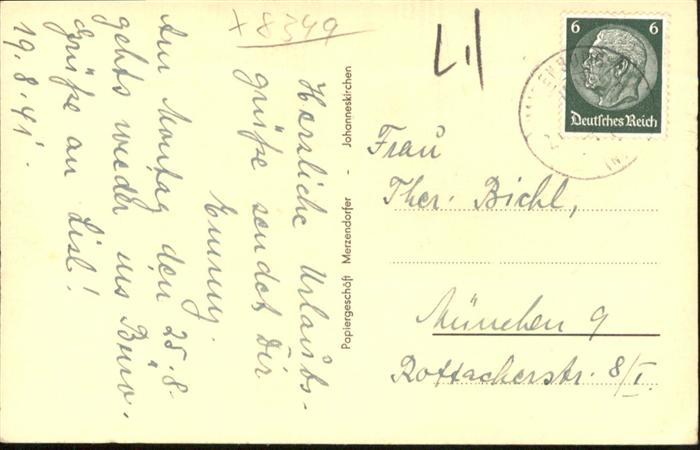 x 8349
Herzliche Urlaubs-
grüße sendet Dir
Emmy.
Am Montag den 25.8.
gehts wieder ins Büro.
Grüße an Lisl!
19.8.41.
Papiergeschäft Merzendorfer - Johanneskirchen
6 6
Deutsches Reich
Frau
Ther. Bichl,
München 9
Rottacherstr. 8/I.